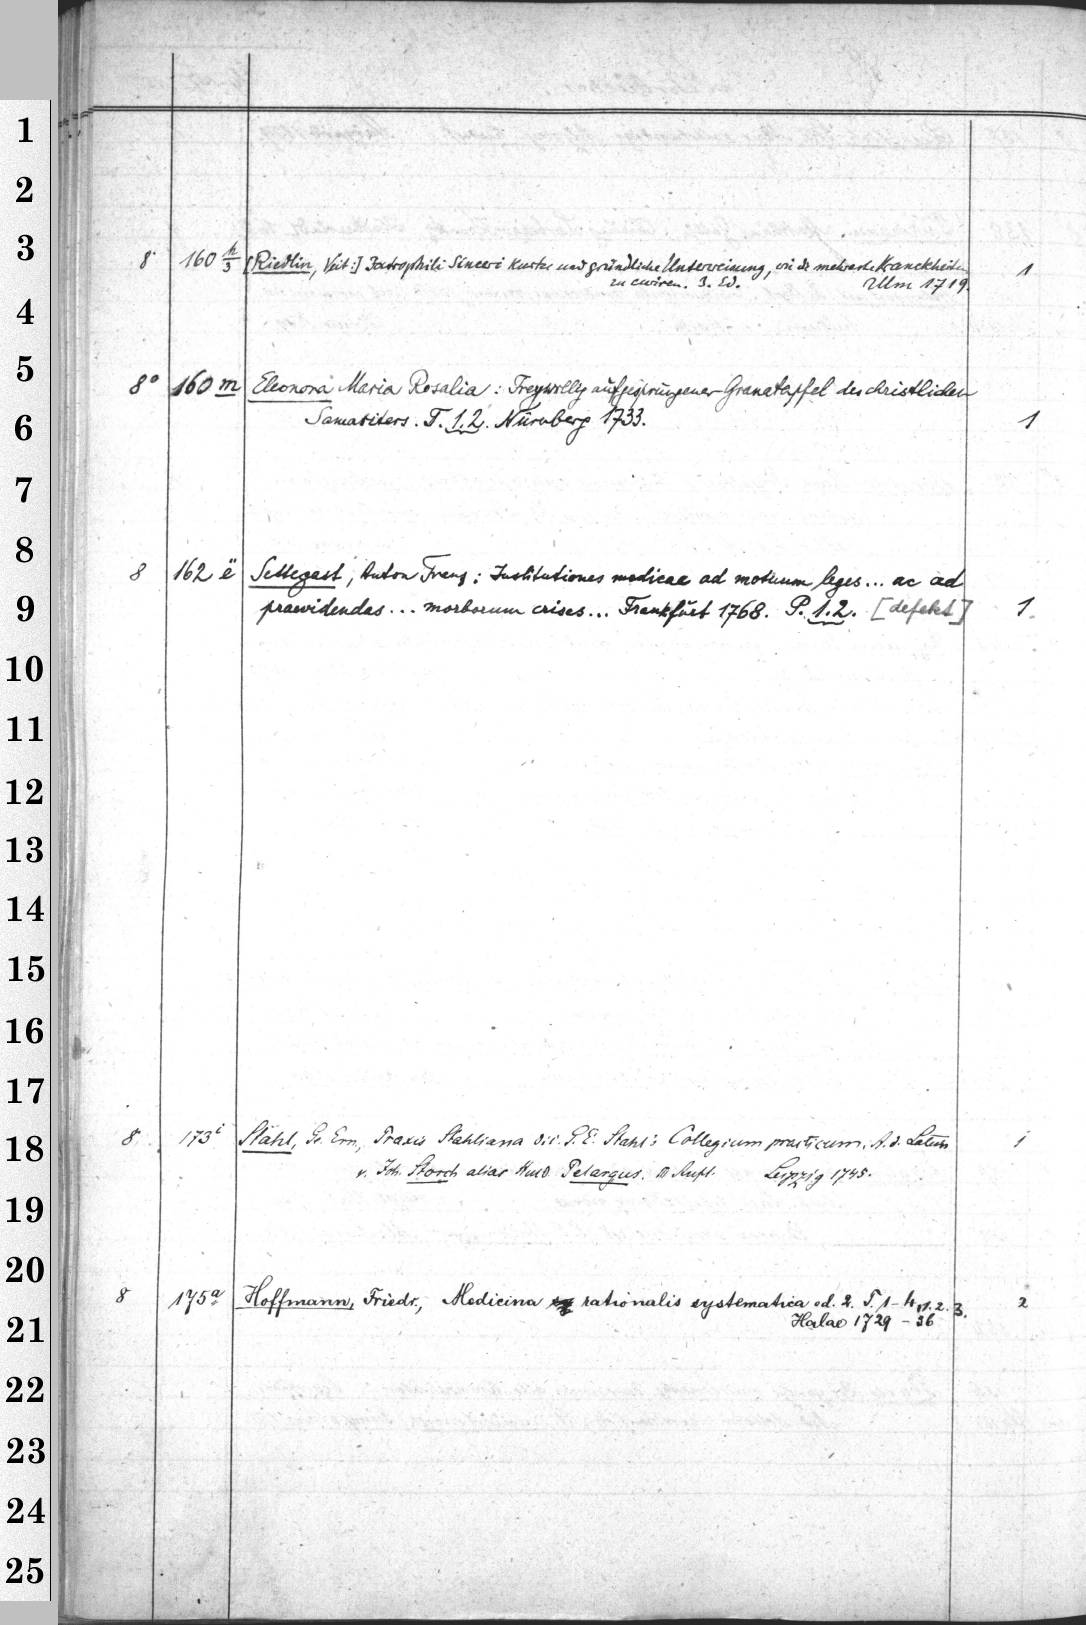 1
2
3
8° 160 h/3 [Riedlin, Veit:] Jatrophili Sinceri kurtze und gründliche Unterweisung, wie die mehreste Kranckheiten 1
zu curiren. 3. Ed. Ulm 1719.
4
5
8° 160 m Eleonora Maria Rosalia: Freywillig aufgesprungener Granatapfel des christlichen
6
Samariters. T. 1.2. Nürnberg 1733. 1
7
8
8 162 ë Settegast, Anton Franz: Institutiones medicae ad motuum leges... ac ad
9
praevidendas... morborum crises... Frankfurt 1768. P. 1.2. [defekt] 1
10
11
12
13
14
15
16
17
18
8 173 i Stahl, Ge. Ern., Praxis Stahliana d. i. G. E. Stahl: Collegium practicum. A. d. Latein 1
v. Joh. Storch alias Huld. Pelargus. III Aufl. Leipzig 1745.
19
20
8 175 a Hoffmann, Friedr., Medicina rationalis systematica ed. 2. T. 1-4, 1. 2. 3. 2
Halae 1729-36
21
22
23
24
25